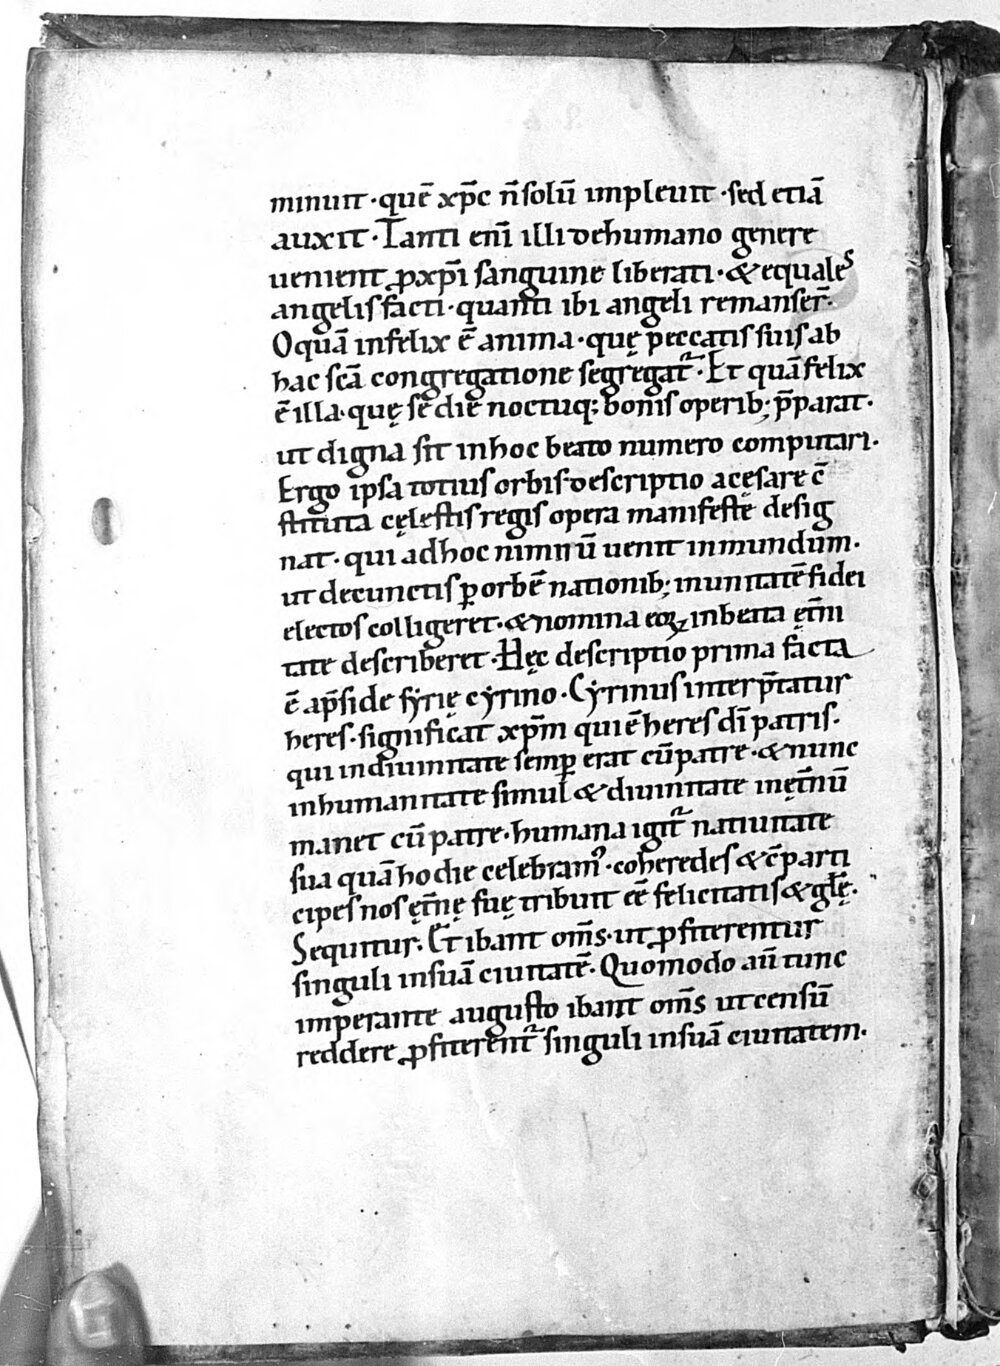 minuit · quē xp̄c n̄ solū impleuit · sed etiā
auxit · Tanti eni̅ illi de humano genere
uenient ꝑ xp̄i sanguine liberati · & equales
angelis facti · quanti ibi angeli remanser̄ ·
O quā infelix ē anima · quę peccatis suis ab
hac sc̄a congregatione segregat᷑ · Et quā felix
ē illa · quę se die noctuq; bonis operib; p̄parat ·
ut digna sit in hoc beato numero computari ·
Ergo ipsa totius orbis descriptio a cęsare c̄
stituta cęlestis regis opera manifeste desig
nat · qui ad hoc nimirū uenit in mundum ·
ut de cunctis ꝑ orbē nationib; in unitatē fidei
electos colligeret · & nomina eoꝝ in beata ęt̄ni
tate describeret · Hęc descriptio prima facta
ē a p̄side sẏrię cẏrino · Cẏrinus interp̄tatur
heres · significat xp̄m qui ē heres di̅ patris ·
qui in diuinitate semꝑ erat cū patre · & nunc
in humanitate simul & diuinitate in ęt̄nū
manet cū patre · humana igit᷑ natiuitate
sua quā hodie celebramꝰ · coheredes & c̄parti
cipes nos ęt̄nę suę tribuit eē felicitatis & gl̄ę ·
Sequitur · Et ibant om̄s · ut ꝓfiterentur
singuli in suā ciuitatē · Quomodo aū tunc
imperante augusto ibant om̄s ut censū
reddere ꝓfiterent᷑ singuli in suā ciuitatem ·